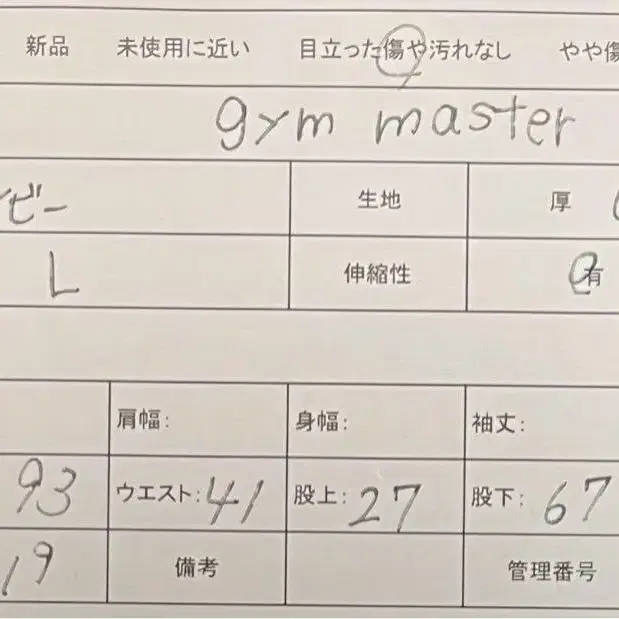 新品 未使用に近い 目立った傷や汚れなし やや傷
gym master
ビー 生地 厚
L 伸縮性 有
肩幅: 身幅: 袖丈:
93 ウエスト: 41 股上: 27 股下: 67
19 備考 管理番号